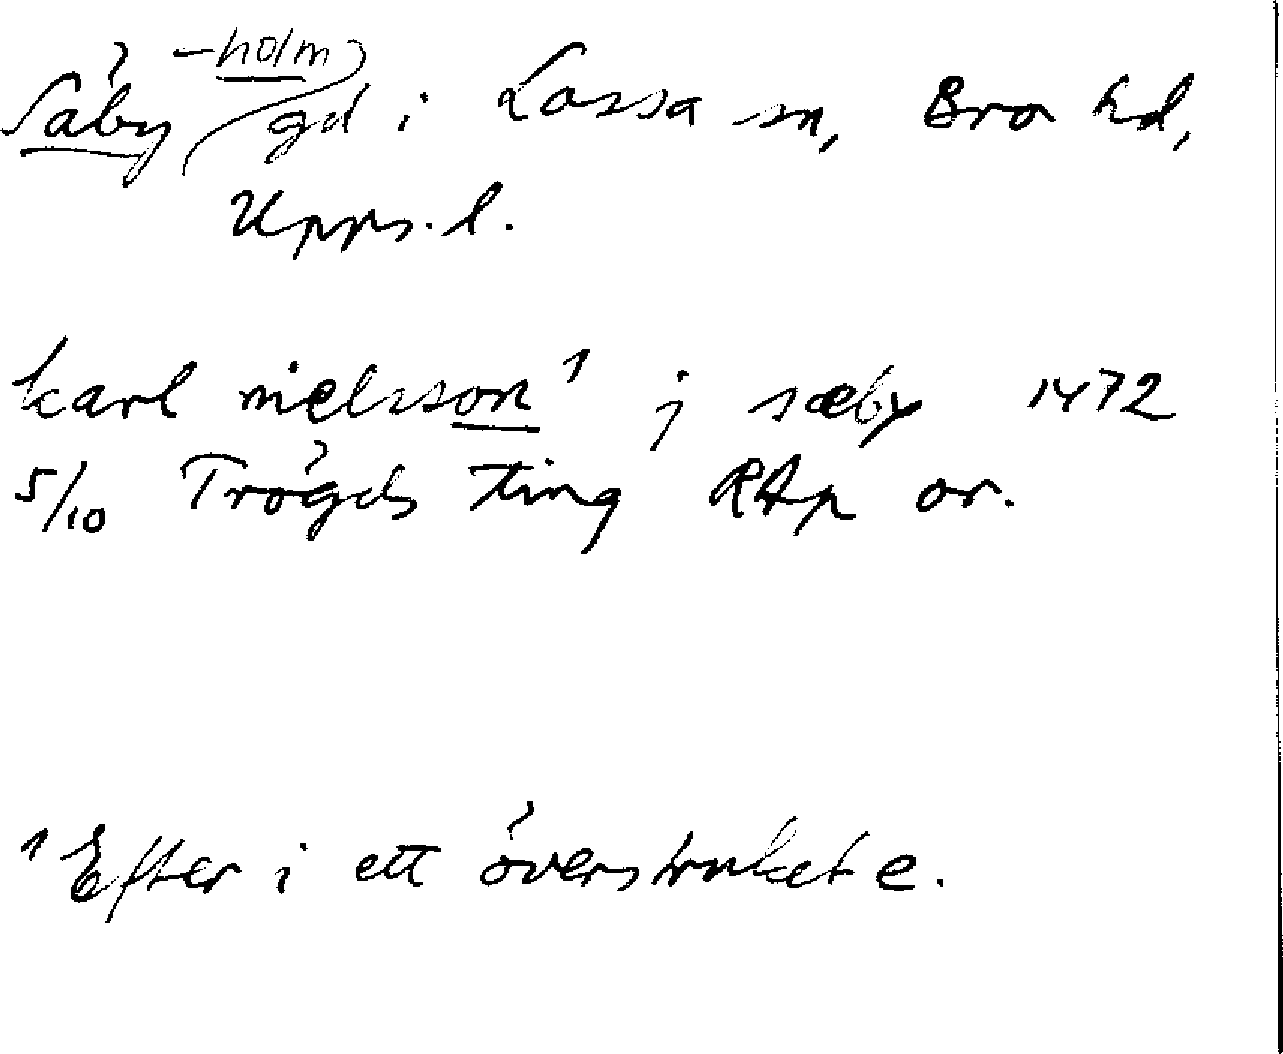 Säby -holm gd i Lossa sn, Bro hd,
Upps. l.
karl nielsson¹ j sæby 1472
5/10 Trögds ting RAp or.
¹ Efter i ett överstruket e.